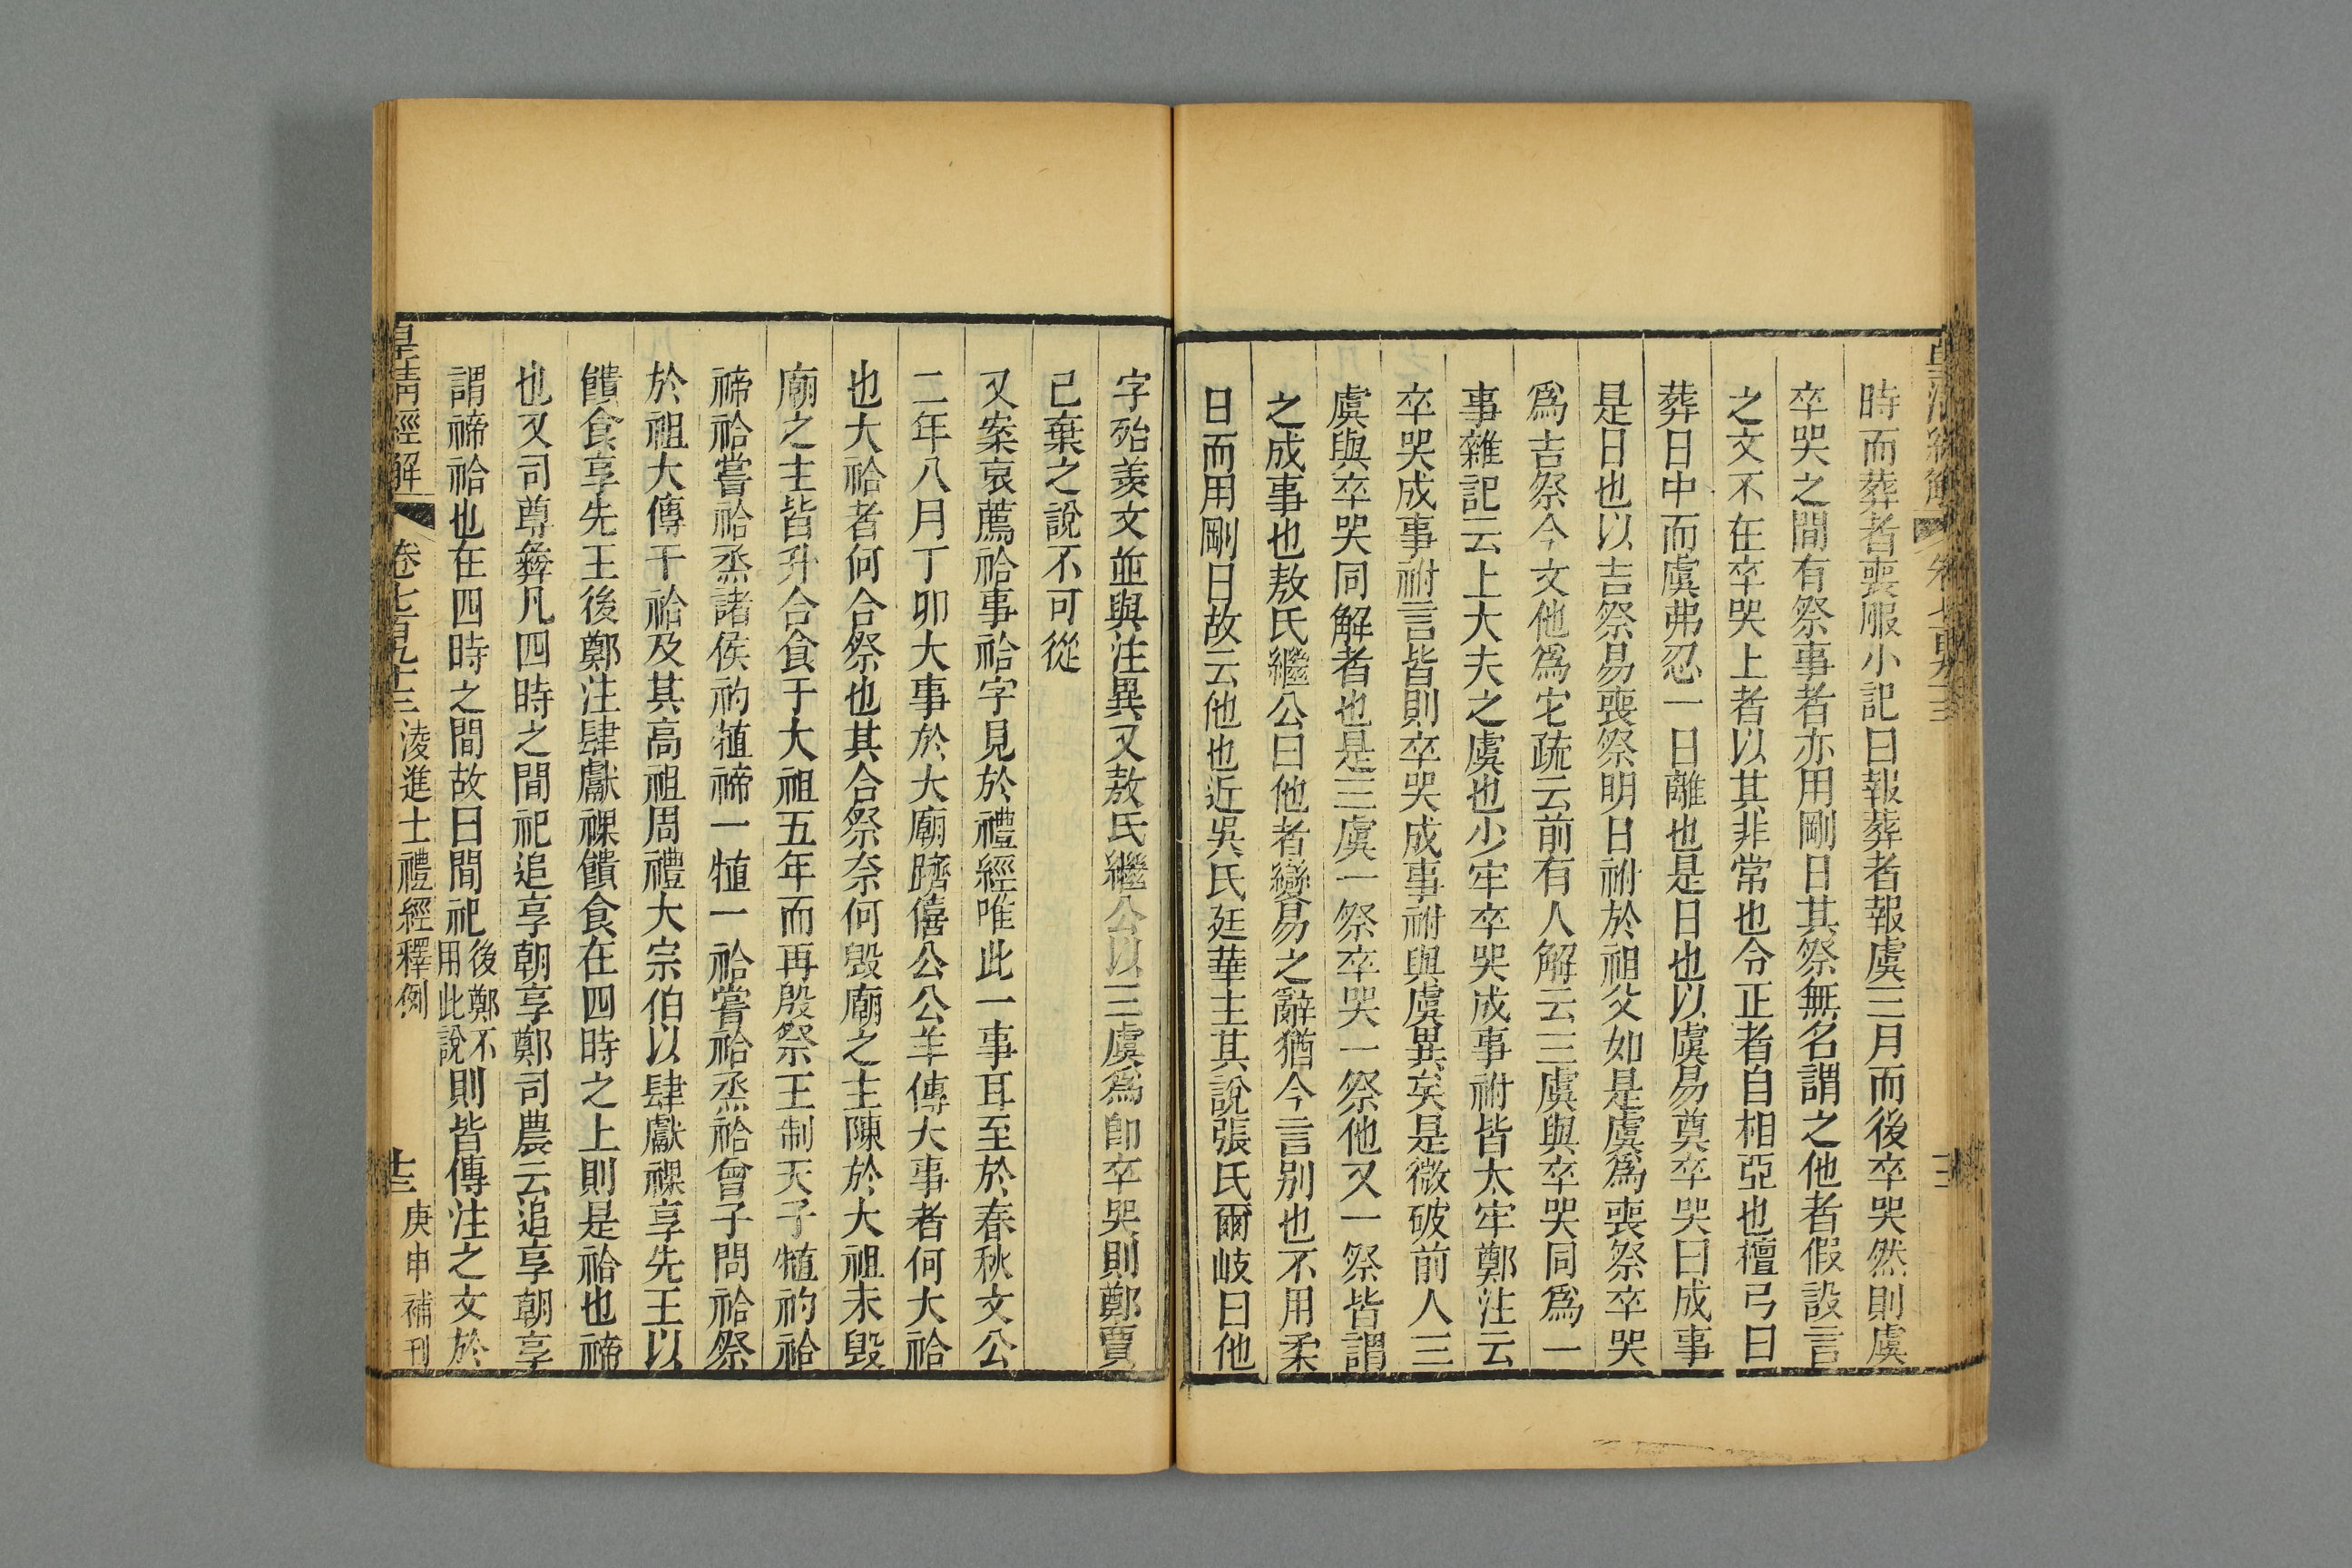 時而葬者喪服小記曰報葬者報虞三月而後卒哭然則虞
卒哭之間有祭事者亦用剛日其祭無名謂之他者假設言
之文不在卒哭上者以其非常也令正者自相亞也檀弓曰
葬日中而虞弗忍一日離也是日也以虞易奠卒哭曰成事
是日也以吉祭易喪祭明日祔於祖父如是虞爲喪祭卒哭
爲吉祭今文他爲它疏云前有人解云三虞與卒哭同爲一
事雜記云上大夫之虞也少牢卒哭成事祔皆太牢鄭注云
卒哭成事祔言皆則卒哭成事祔與虞異矣是微破前人三
虞與卒哭同解者也是三虞一祭卒哭一祭他又一祭皆謂
之成事也敖氏繼公曰他者變易之辭猶今言别也不用柔
日而用剛日故云他也近吳氏廷華主其說張氏爾岐曰他
字殆羨文並與注異又敖氏繼公以三虞爲卽卒哭則鄭賈
已棄之說不可從
又案哀薦祫事祫字見於禮經唯此一事耳至於春秋文公
二年八月丁卯大事於大廟躋僖公公羊傳大事者何大祫
也大祫者何合祭也其合祭奈何毁廟之主陳於大祖未毁
廟之主皆升合食于大祖五年而再殷祭王制天子犆礿祫
禘祫嘗祫烝諸侯礿犆禘一犆一祫嘗祫烝祫曾子問祫祭
於祖大傳干祫及其高祖周禮大宗伯以肆獻祼享先王以
饋食享先王後鄭注肆獻祼饋食在四時之上則是祫也禘
也又司尊彝凡四時之間祀追享朝享鄭司農云追享朝享
謂禘祫也在四時之間故曰間祀後鄭不用此說則皆傳注之文於
皇清經解 卷七百九十三 淩進士禮經釋例 十三 庚申補刊